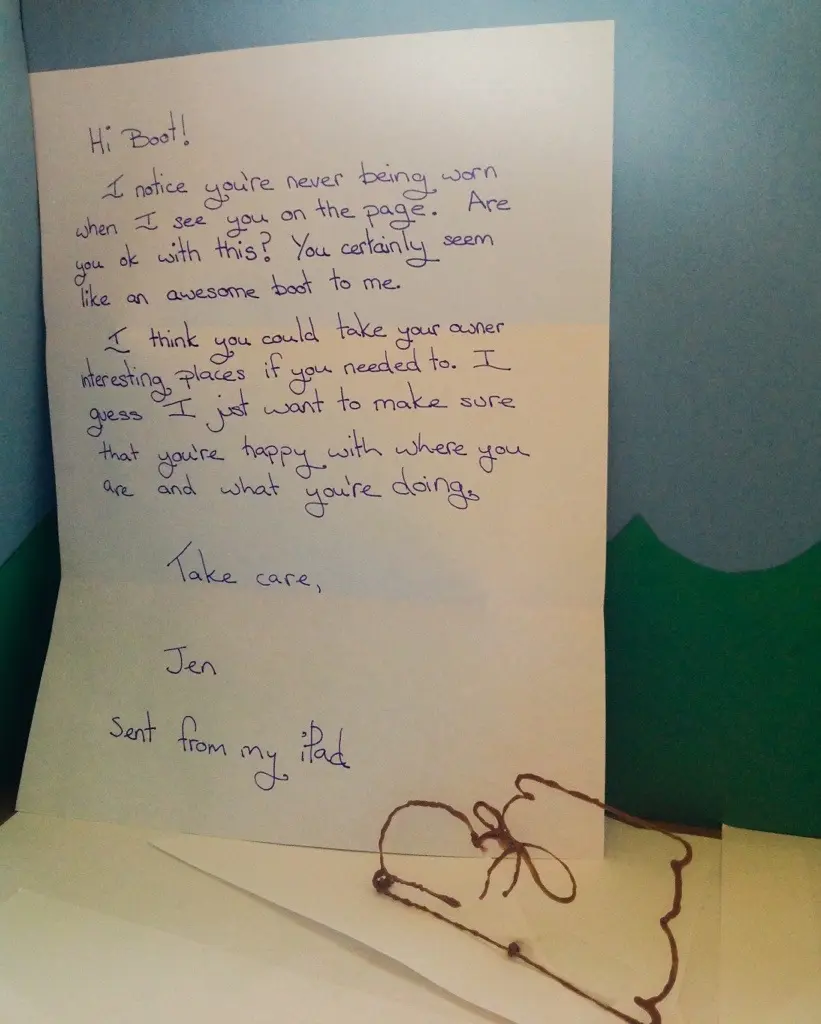 Hi Boot!
I notice you're never being worn
when I see you on the page. Are
you ok with this? You certainly seem
like an awesome boot to me.
I think you could take your owner
interesting places if you needed to. I
guess I just want to make sure
that you're happy with where you
are and what you're doing.
Take care,
Jen
Sent from my iPad